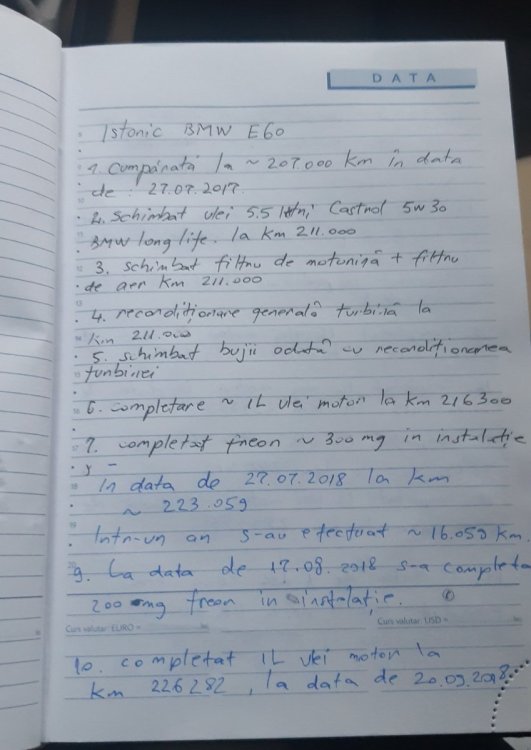 DATA
Istoric BMW E60
1. Cumpărată la ~ 207.000 km în data
de : 27.07.2017.
2. schimbat ulei 5.5 litri Castrol 5w30
BMW long life. la km 211.000
3. schimbat filtru de motorină + filtru
de aer km 211.000
4. recondiționare generală turbină la
km 211.000
5. schimbat bujii odată cu recondiționarea
turbinei
6. completare ~ 1L ulei motor la km 216300
7. completat freon ~ 300 mg in instalație
In data de 27.07.2018 la km
~ 223.059
Intr-un an s-au efectuat ~ 16.059 km.
9. La data de 17.08.2018 s-a completa
200 mg freon in instalație.
Curs valutar: EURO = Curs valutar: USD =
10. completat 1L ulei motor la
km 226282, la data de 20.09.2018